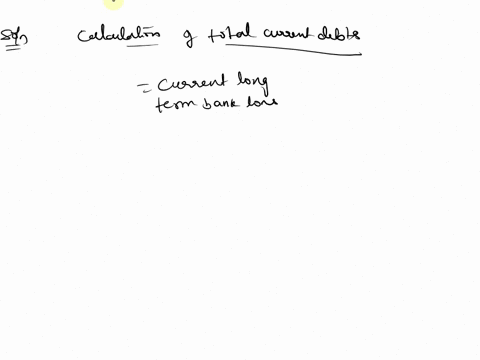 Sol, Calculation of total current debts
= Current long
term bank loan